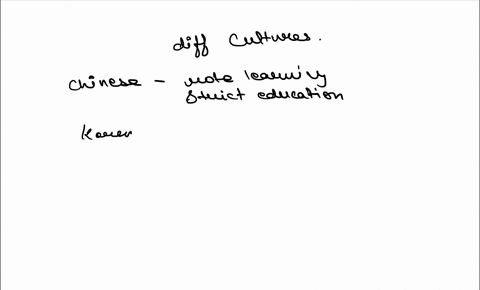 diff cultures.
chinese - rote learning
strict education
Korean